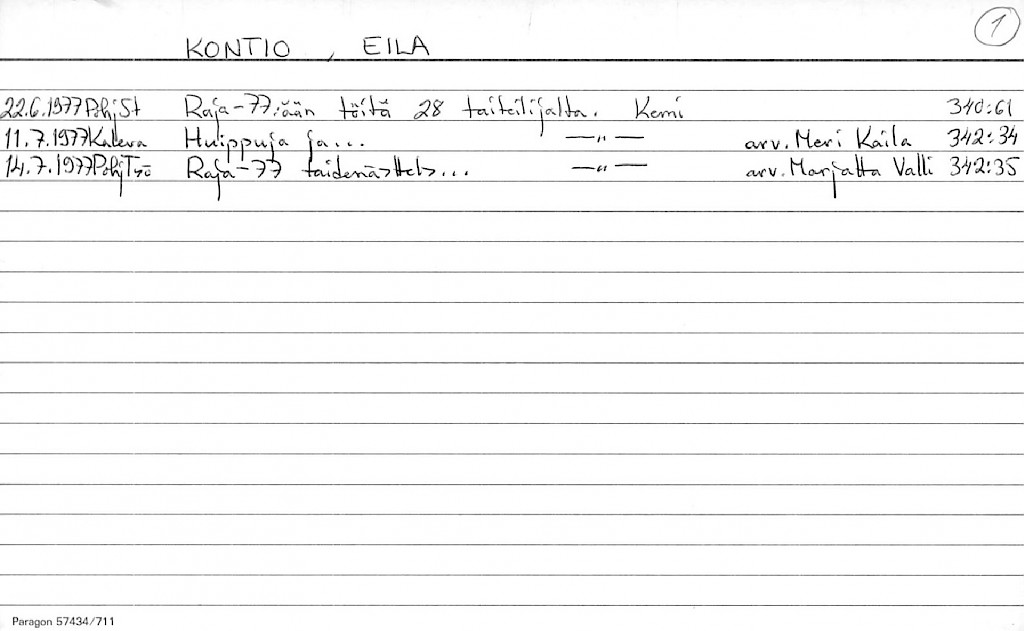 1
KONTIO, EILA
22.6.1977 PohjSt Raja-77:ään töitä 28 taiteilijalta. Kemi 340:61
11.7.1977 Kaleva Huippuja ja... —〃— arv. Meri Kaila 342:34
14.7.1977 PohjTyö Raja-77 taidenäyttely... —〃— arv. Marjatta Valli 342:35
Paragon 57434/711